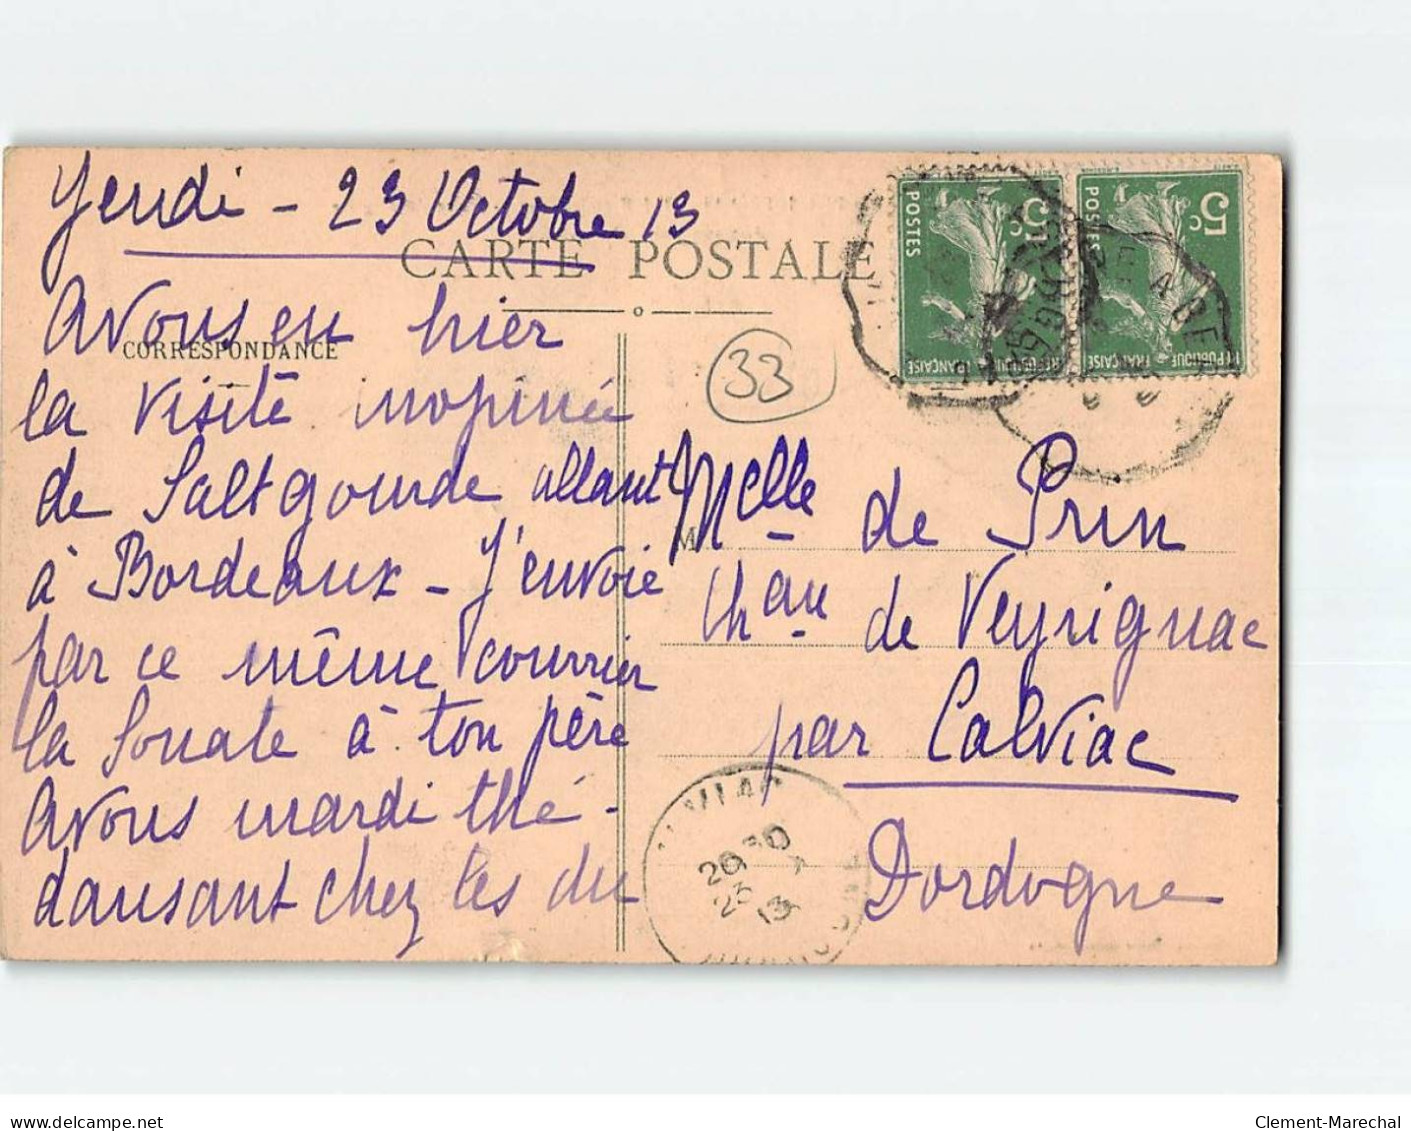 Jeudi - 23 Octobre 13
CARTE POSTALE
CORRESPONDANCE
Avons eu hier
la visite inopinée
de Saltgourde allant
à Bordeaux - J'envoie
par ce même courrier
la Sonate à ton père
Avons mardi thé -
dansant chez les du
33
POSTES
5c
REPUBLIQUE FRANÇAISE
POSTES
5c
REPUBLIQUE FRANÇAISE
M
Melle de Prin
Chau de Veyrignac
par Calviac
Dordogne
DORDOGNE
13
delcampe.net
Clement-Marechal